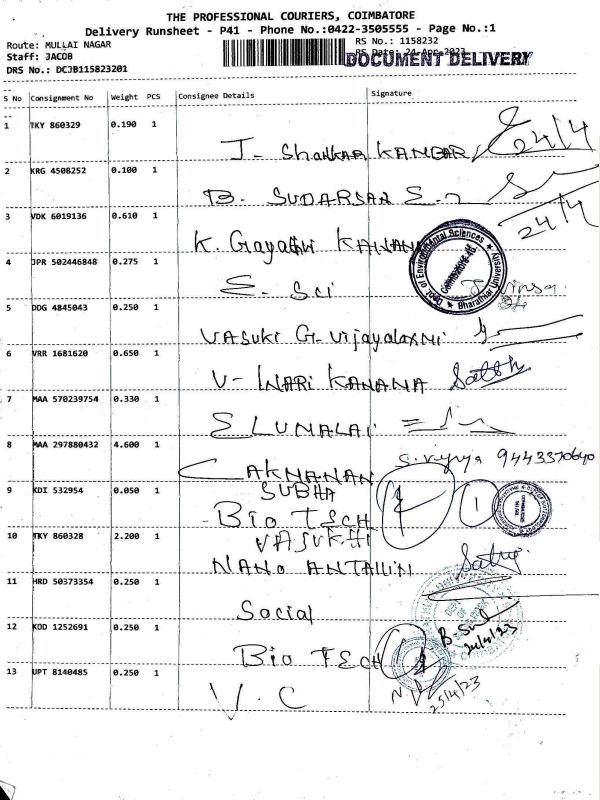 THE PROFESSIONAL COURIERS, COIMBATORE
Delivery Runsheet - P41 - Phone No.:0422-3505555 - Page No.:1
Route: MULLAI NAGAR
RS No.: 1158232
Staff: JACOB
RS Date: 24-Apr-2023
DOCUMENT DELIVERY
DRS No.: DCJB115823201
S No Consignment No Weight PCS Consignee Details Signature
1 TKY 860329 0.190 1
J- Shankar KANGAR 24/4
2 KRG 4508252 0.100 1
B. SUDARSAN E.
24/4
3 VDK 6019136 0.610 1
K. Gayathri
Dept. of Environmental Sciences Bharathiar University
Coimbatore-46
4 JPR 502446848 0.275 1
E- Sci
5 DDG 4845043 0.250 1
VASUKI G- Vijayalaxmi
6 VRR 1681620 0.650 1
V- INARI KANANA
7 MAA 570239754 0.330 1
8 MAA 297880432 4.600 1
S. Vijya 9443370640
9 KDI 532954 0.050 1
SUBHA
BIO TECH
10 TKY 860328 2.200 1
VASUKHI
NANO
11 HRD 50373354 0.250 1
Social
12 KOD 1252691 0.250 1
24/4/23
BIO TECH
13 UPT 8140485 0.250 1
25/4/23
V.C